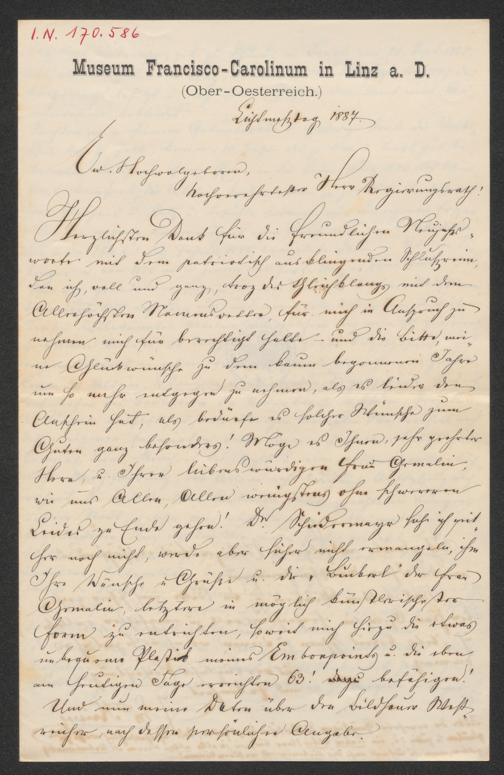 I. N. 170.586
Museum Francisco-Carolinum in Linz a. D.
(Ober-Oesterreich.)
Lichtmeßtag 1887.
Ew. Hochwolgeboren,
Hochverehrtester Herr Regierungsrath!
Herzlichsten Dank für die freundlichen Neujahrs-
worte mit dem patriotisch ausklingenden Schlußreim,
den ich, voll und ganz, troz des Gleichklangs mit dem
Allerhöchsten Namens, für mich in Anspruch zu
nehmen mich für berechtigt halte – und die Bitte, mei-
ne Glükwünsche zu dem kaum begonnenen Jahre
um so mehr entgegen zu nehmen, als es leider den
Anschein hat, als bedürfe es solcher Wünsche zum
Guten ganz besonders! Möge es Ihnen, sehr geehrter
Herr, u. Ihrer liebenswürdigen Frau Gemalin,
wie uns Allen, Allen wenigstens ohne schwereren
Leides zu Ende gehen! Dr Schiedermayr habe ich seit-
her noch nicht, werde aber sicher nicht ermangeln, ihm
Ihre Wünsche u Grüße u. die der Frau
Gemalin, letztere in möglich künstlerischester
Form zu entrichten, soweit mich hiezu die etwas
unbequeme Plastik meines Embonpoints u. die eben
am heutigen Tage erreichten 63! befähigen!
Und nun meine Daten über den Bildhauer West-
reicher nach dessen persönlicher Angabe.